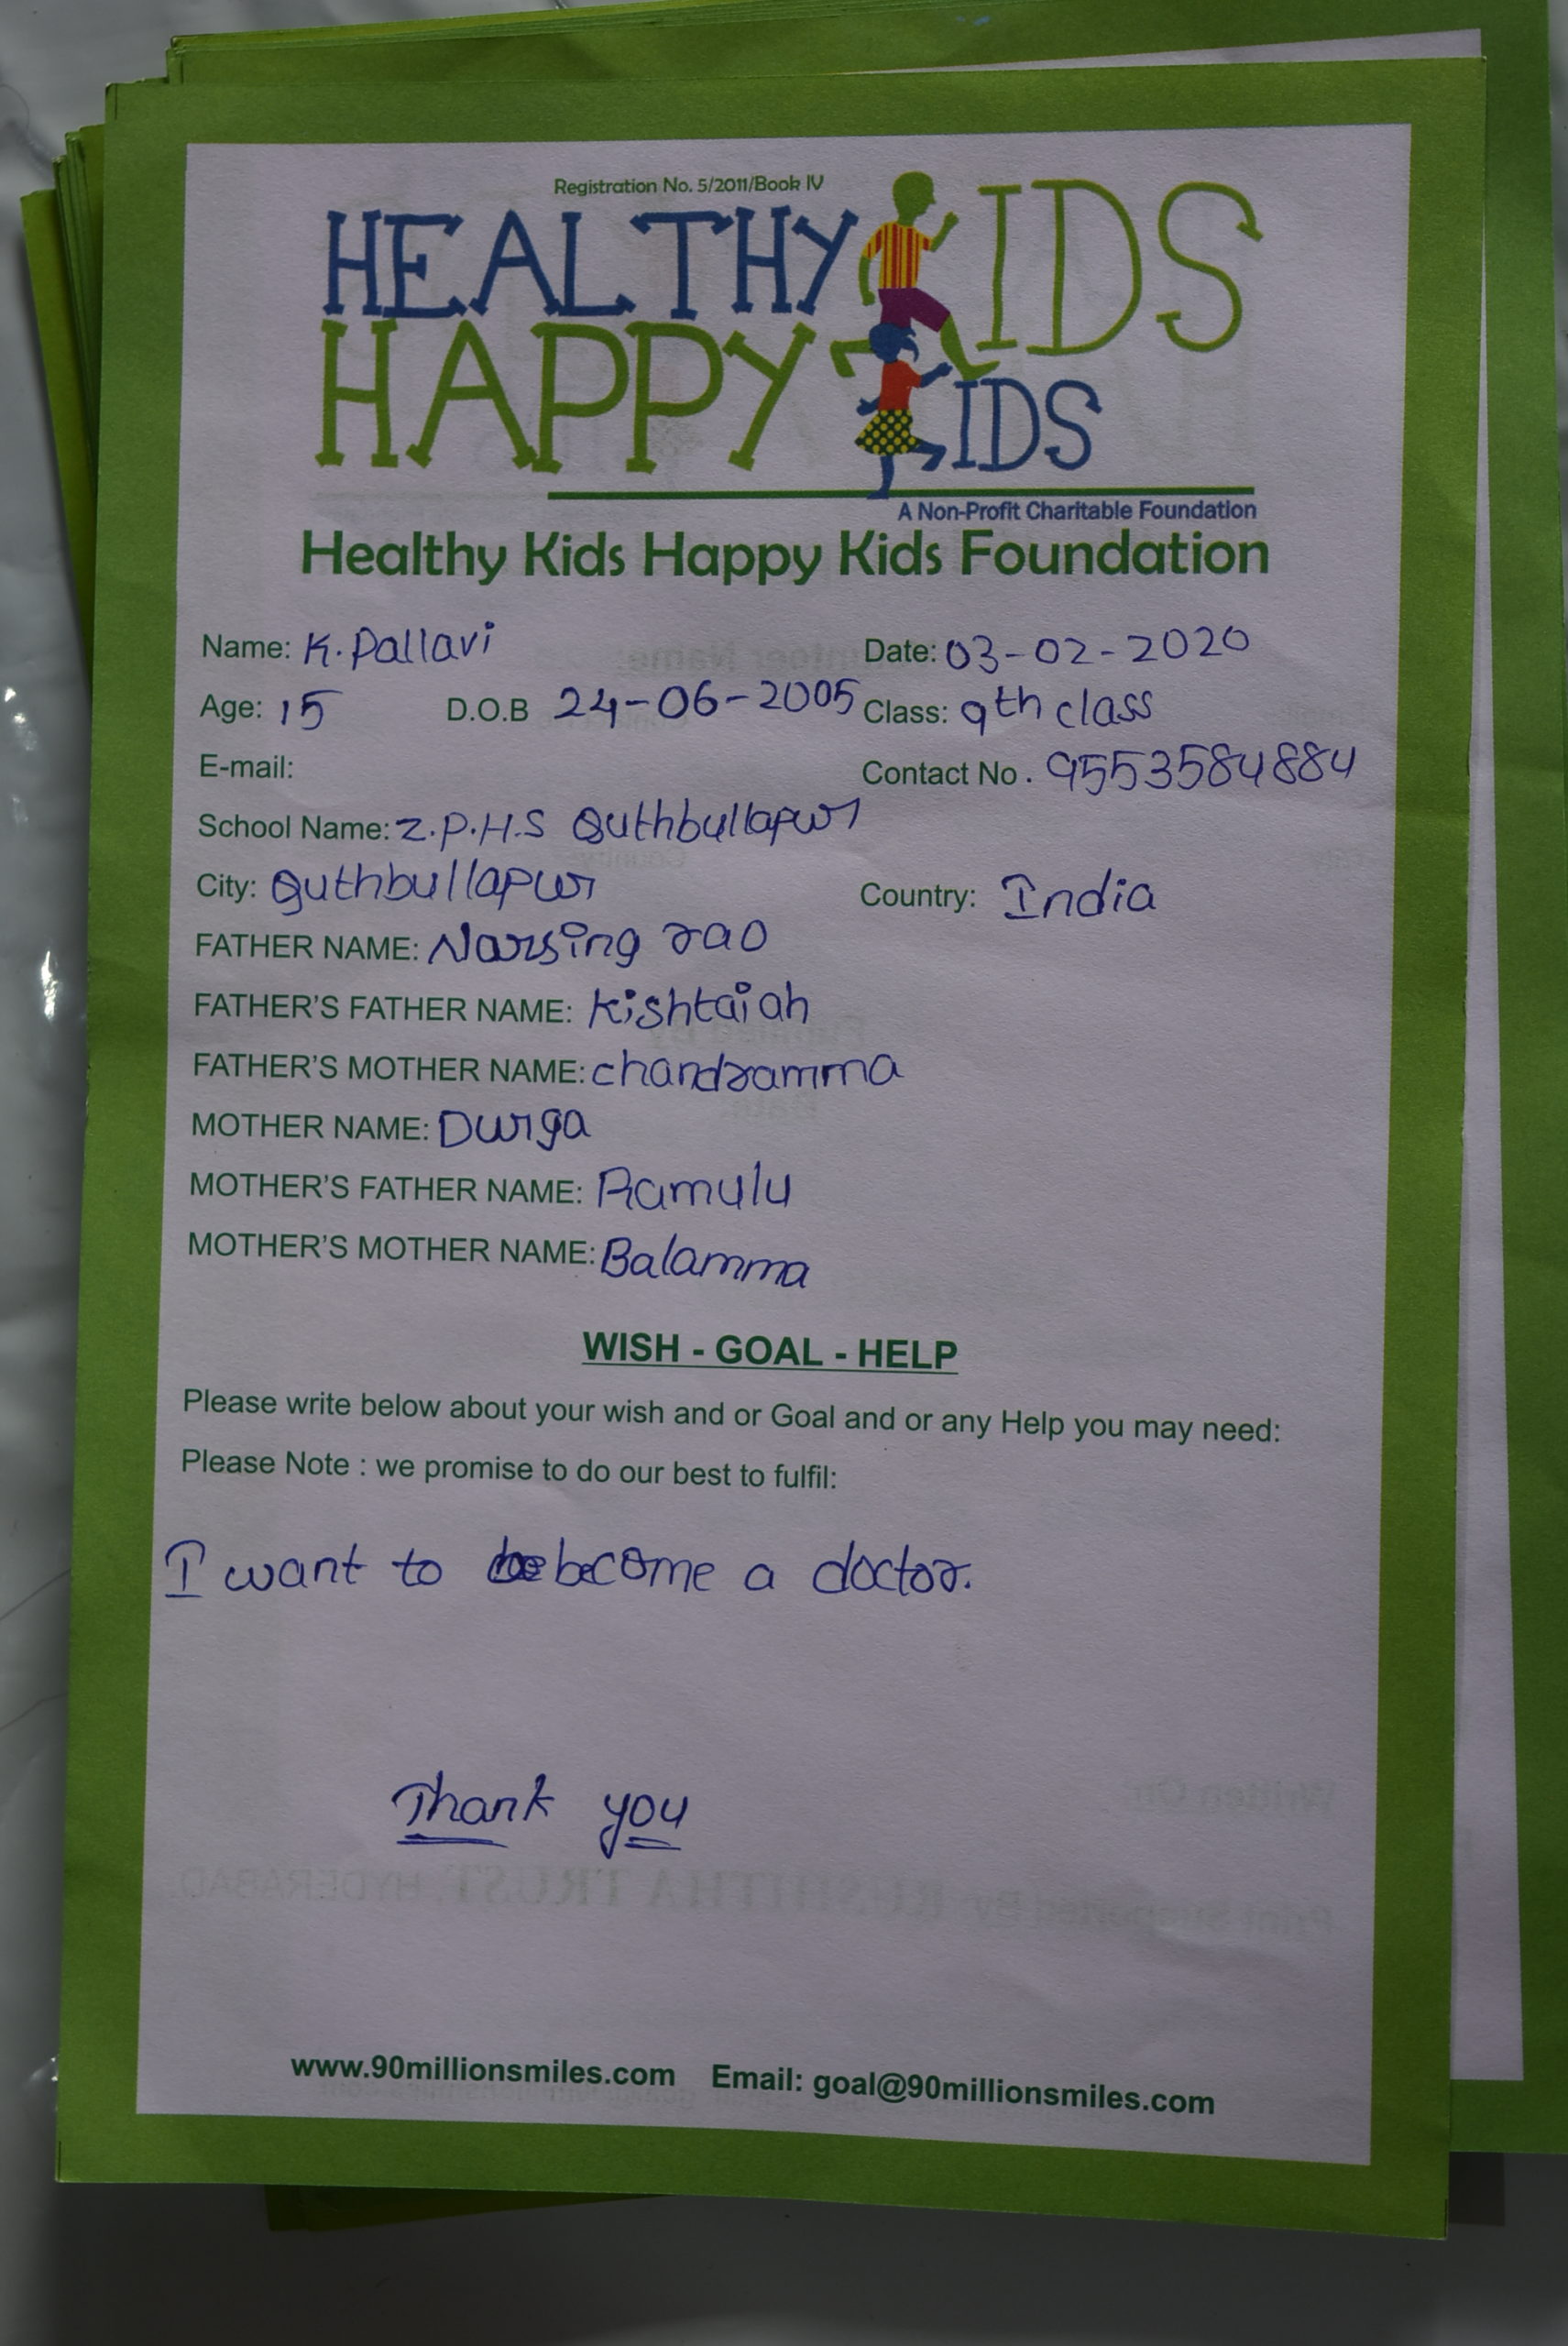 Registration No. 5/2011/Book IV
HEALTHY KIDS
HAPPY KIDS
A Non-Profit Charitable Foundation
Healthy Kids Happy Kids Foundation
Name: K. Pallavi Date: 03-02-2020
Age: 15 D.O.B 24-06-2005 Class: 9th class
E-mail: Contact No. 9553584884
School Name: Z.P.H.S Quthbullapur
City: Quthbullapur Country: India
FATHER NAME: Narsing rao
FATHER'S FATHER NAME: Kishtaiah
FATHER'S MOTHER NAME: chandramma
MOTHER NAME: Durga
MOTHER'S FATHER NAME: Ramulu
MOTHER'S MOTHER NAME: Balamma
WISH - GOAL - HELP
Please write below about your wish and or Goal and or any Help you may need:
Please Note : we promise to do our best to fulfil:
I want to become a doctor.
Thank you
www.90millionsmiles.com Email: goal@90millionsmiles.com